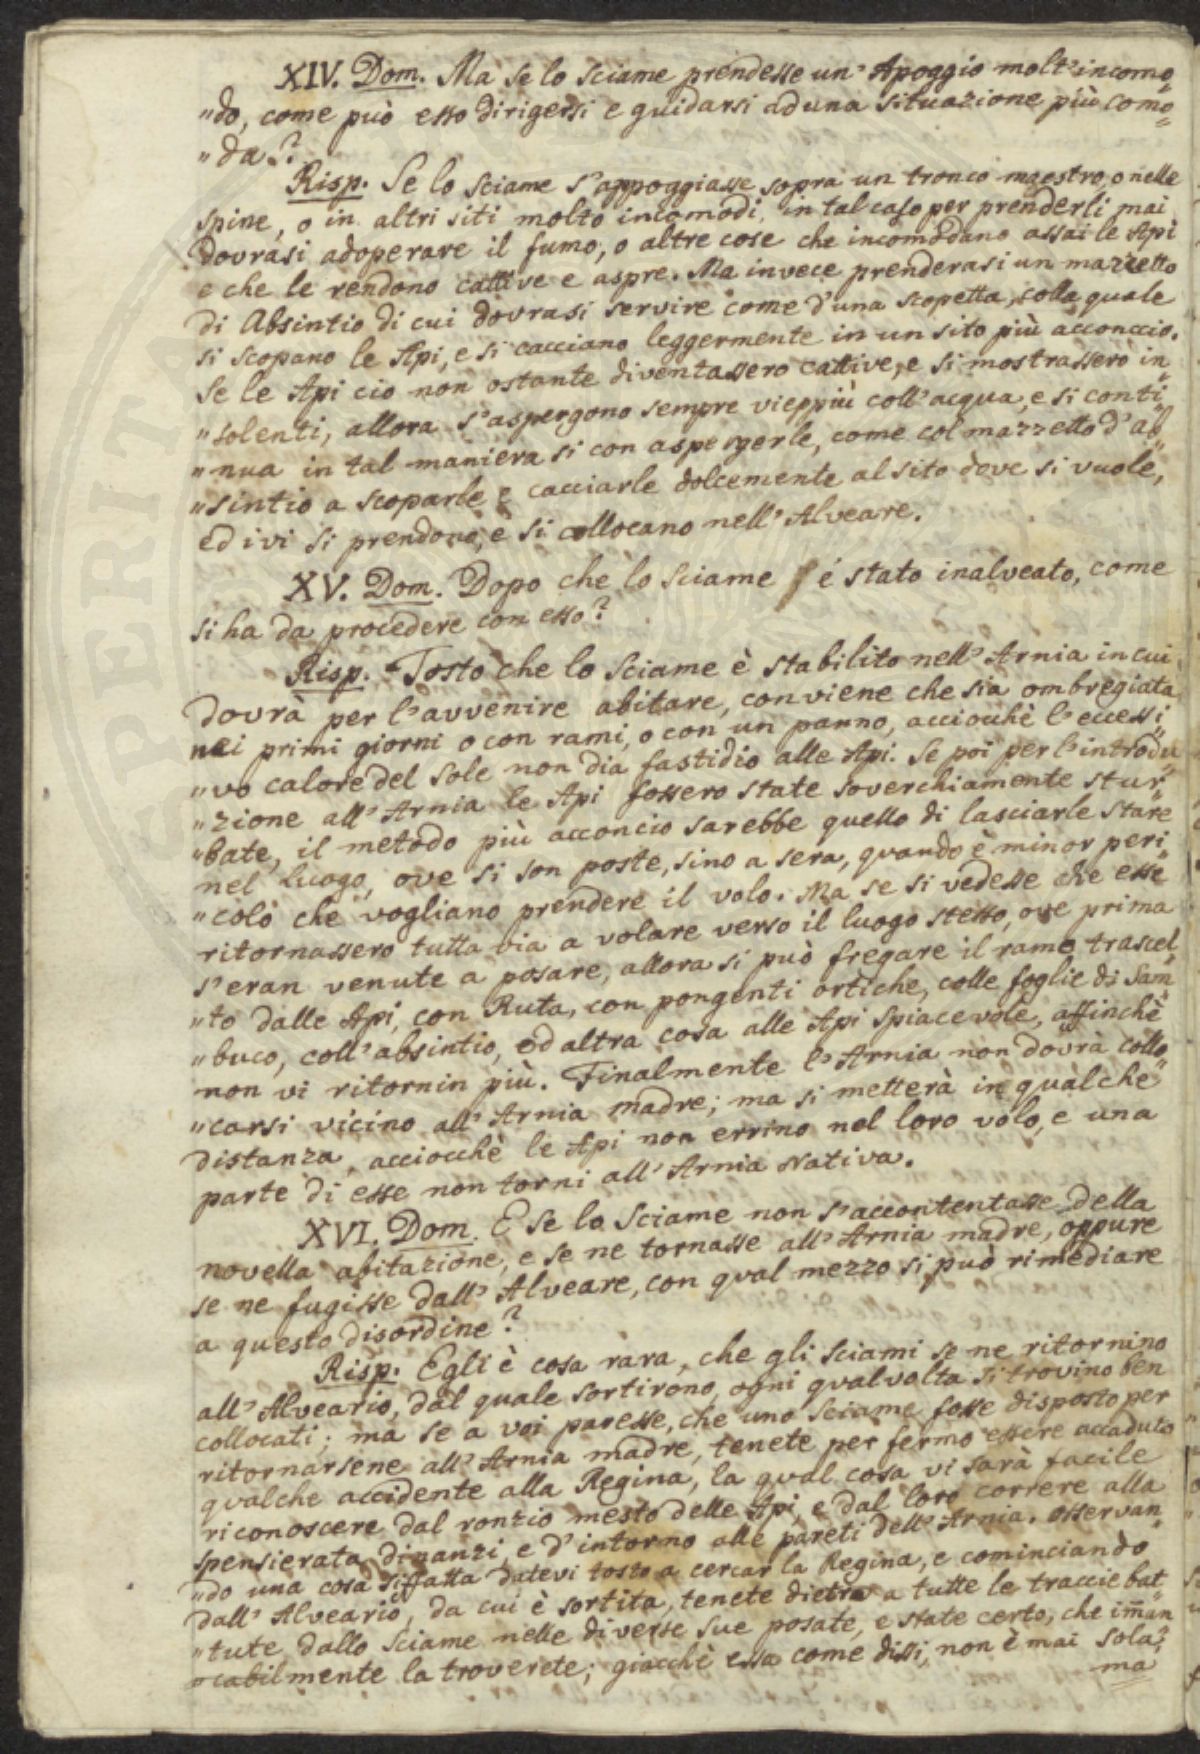 XIV. Dom. Ma se lo sciame prendesse un' Apoggio molt' incomo„
„do, come può esso dirigersi e guidarsi ad una situazione più como„
„da?
Risp. Se lo sciame s'appoggiasse sopra un tronco maestro, o nelle
spine, o in altri siti molto incomodi, in tal caso per prenderli mai
dovrasi adoperare il fumo, o altre cose che incomodano assai le Api
e che le rendono cattive e aspre. Ma invece prenderasi un mazzetto
di Absintio di cui dovrasi servire come d'una scopetta, colla quale
si scopano le Api, e si cacciano leggermente in un sito più acconccio.
Se le Api cio non ostante diventassero cattive, e si mostrassero in„
„solenti, allora s'aspergono sempre vieppiù coll' acqua, e si conti„
„nua in tal maniera si con aspergerle, come col mazzetto d'ab„
„sintio a scoparle e cacciarle dolcemente al sito dove si vuole,
ed ivi si prendono, e si collocano nell' Alveare.
XV. Dom. Dopo che lo sciame é stato inalveato, come
si ha da procedere con esso?
Risp. Tosto che lo sciame è stabilito nell' Arnia in cui
dovrà per l'avvenire abitare, conviene che sia ombregiata
nei primi giorni o con rami, o con un panno, acciocchè l'eccessi„
„vo calore del sole non dia fastidio alle Api. Se poi per l'introdu„
„zione all' Arnia le Api fossero state soverchiamente stur„
„bate, il metodo più acconcio sarebbe quello di lasciarle stare
nel Luogo, ove si son poste, sino a sera, quando è minor peri„
„colo che vogliano prendere il volo. Ma se si vedesse che esse
ritornassero tutta via a volare verso il luogo stesso, ove prima
s'eran venute a posare, allora si può fregare il ramo trascel„
„to dalle Api, con Ruta, con pongenti ortiche, colle foglie di Sam„
„buco, coll' absintio, ed altra cosa alle Api spiacevole, affinchè
non vi ritornin più. Finalmente l'Arnia non dovrà collo„
„carsi vicino all' Arnia madre; ma si metterà in qualche
distanza, acciocchè le Api non errino nel loro volo, e una
parte di esse non torni all' Arnia Nativa.
XVI. Dom. E se lo Sciame non s'accontentasse della
novella abitazione, e se ne tornasse all' Arnia madre, oppure
se ne fugisse dall' Alveare, con qual mezzo si può rimediare
a questo disordine?
Risp. Egli è cosa rara, che gli sciami se ne ritornino
all' Alveario, dal quale sortirono, ogni qualvolta si trovino ben
collocati; ma se a voi paresse, che uno sciame fosse disposto per
ritornarsene all' Arnia madre, tenete per fermo essere accaduto
qualche accidente alla Regina, la qual cosa vi sarà facile
riconoscere dal ronzio mesto delle Api, e dal loro correre alla
spensierata dinanzi, e d'intorno alle pareti dell' Arnia. Osservan„
„do una cosa siffatta datevi tosto a cercar la Regina, e cominciando
dall' Alveario, da cui è sortita, tenete dietro a tutte le traccie bat„
„tute dallo sciame nelle diverse sue posate, e state certo, che im̄an„
„cabilmente la troverete; giacchè essa come dissi, non è mai sola;
ma